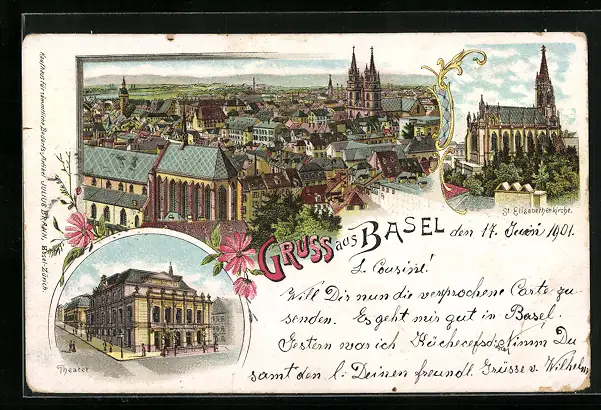 St. Elisabethenkirche.
GRUSS aus BASEL
den 17. Juni 1901.
L. Cousine!
Will Dir nun die versprochene Carte zu-
senden. Es geht mir gut in Basel.
Gestern war ich nimm Du
samt den l. Deinen freundl. Grüsse v. Wilhelm
Theater
JULIUS BRANN, Basel-Zürich.